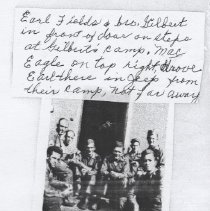 Earl Fields & bro. Gilbert
in front of door on steps
at Gilbert's camp. Mac
Eagle on top right, drove
Earl there in jeep from
their camp, not far away